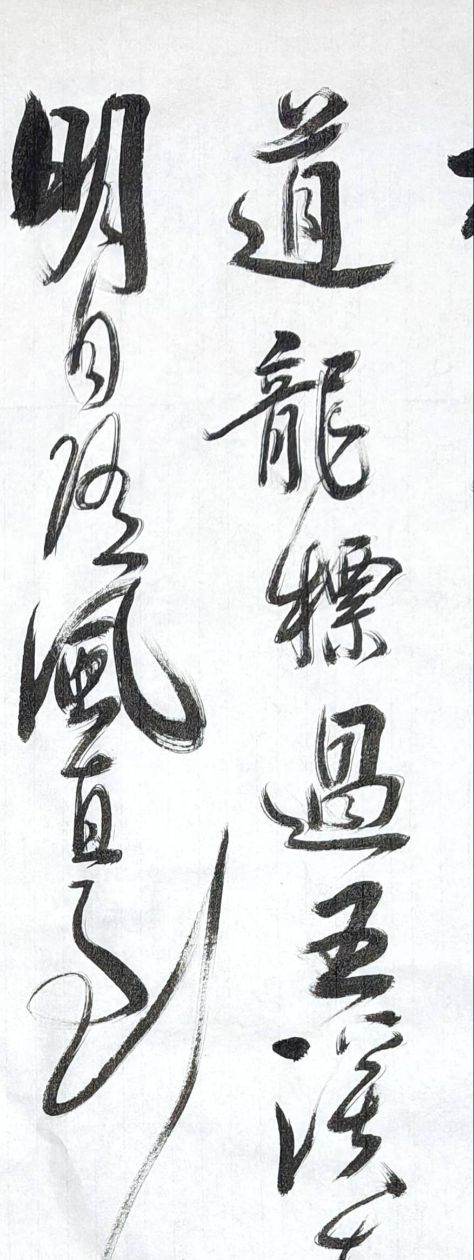 道龍標過五溪
明月隨風直到